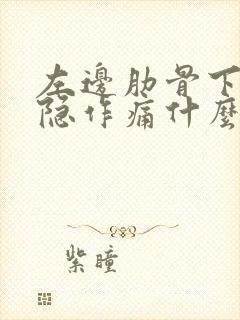 左邊肋骨下
隐作痛什麼
紫瞳